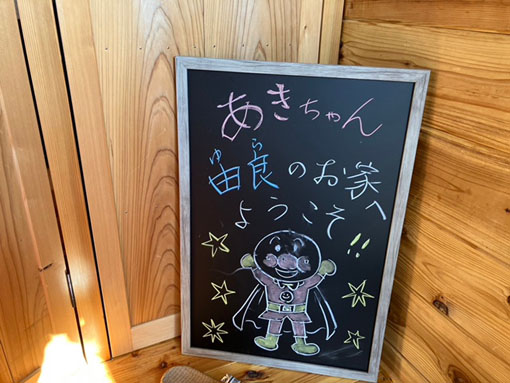 あきちゃん
由良のお家へ
ゆら
ようこそ!!